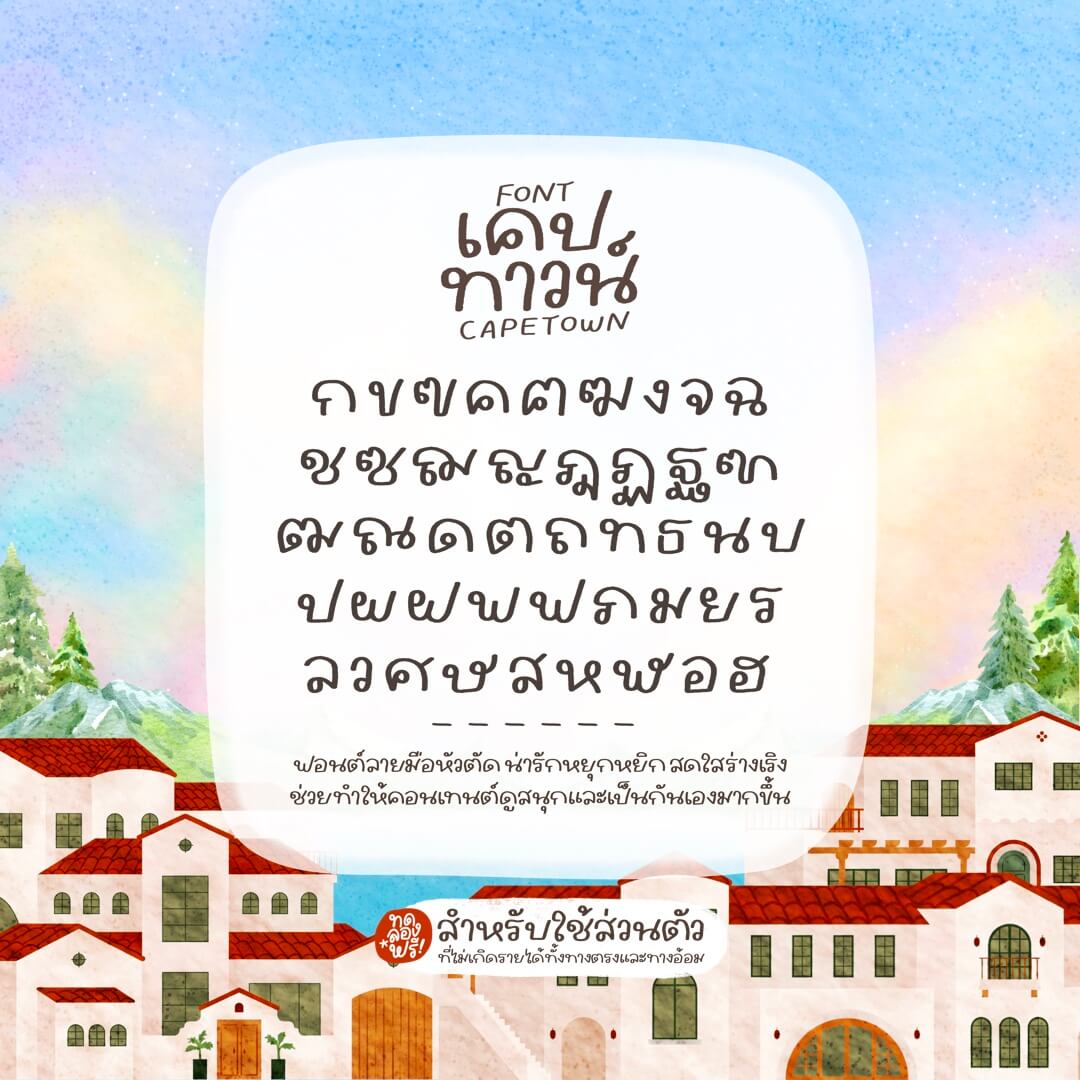 FONT
เคป
ทาวน์
CAPETOWN
ก ข ฃ ค ฅ ฆ ง จ ฉ
ช ซ ฌ ญ ฎ ฏ ฐ ฑ
ฒ ณ ด ต ถ ท ธ น บ
ป ผ ฝ พ ฟ ภ ม ย ร
ล ว ศ ษ ส ห ฬ อ ฮ
ฟอนต์ลายมือหัวตัด น่ารักหยุกหยิก สดใสร่างเริง
ช่วยทำให้คอนเทนต์ดูสนุกและเป็นกันเองมากขึ้น
ทด
ลอง
*ฟรี!
สำหรับใช้ส่วนตัว
ที่ไม่เกิดรายได้ทั้งทางตรงและทางอ้อม